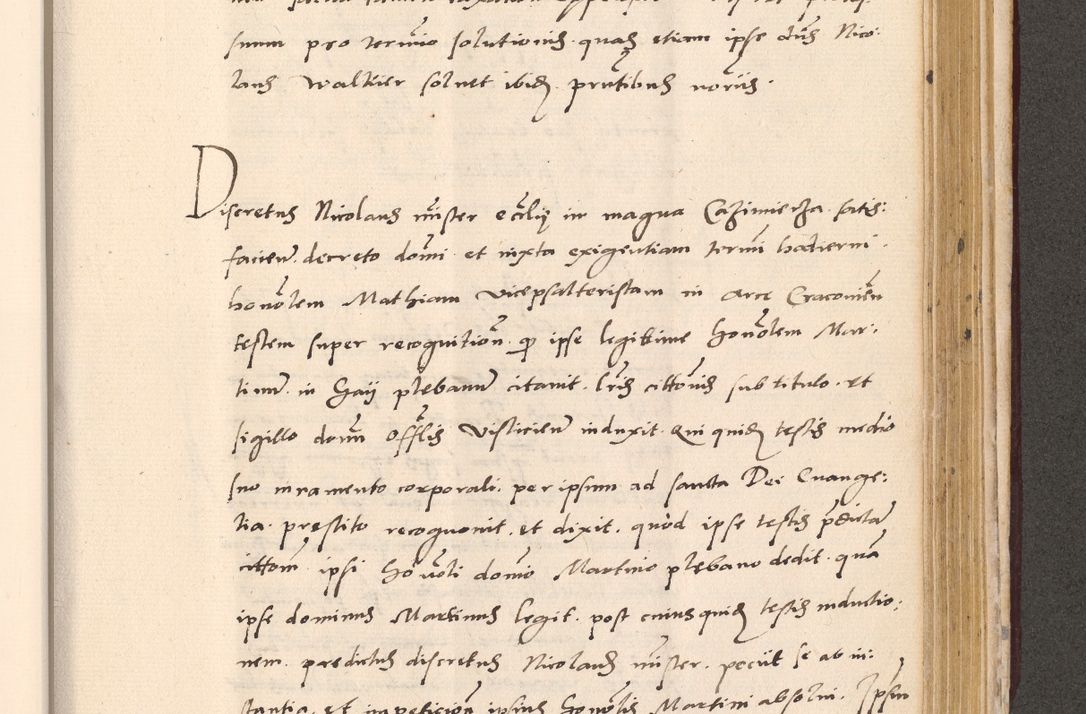 suum pro termīo solutionis. quas etiam ipse dūs Nico:
laus Walkier soluet ibid. prūtibus noriis.
Discretus Nicolaus mīster ecclīe in magna Cazimierza satis:
facien̄. decreto domī et iuxta exigentiam termī hodierni.
honōlem Mathiam Vicepsalteristam in Arce Cracovien̄
testem super recognition̄. q̄ ipse legitime honōlem Mar:
tinum̄. in Gaij plebanum̄ citauit. lrīs cittōnis sub titulo. et
sigillo domī offlīs Visliciēn induxit. Qui quid. testis medio
suo iuramento corporali. per ipsum ad sancta Dei Euange:
lia. prestito recognouit. et dixit. quòd ipse testis p̄dictā
cittōm̄ ipsi honōli domīo Martino plebano dedit. quā
ipse dominus Martinus legit. post cuius quid. testis inductio:
nem. predictus discretus Nicolaus mīster. peciit se ab in:
stantia. et impeticiōn ipsius honōlis Martini absolui. Ipsum